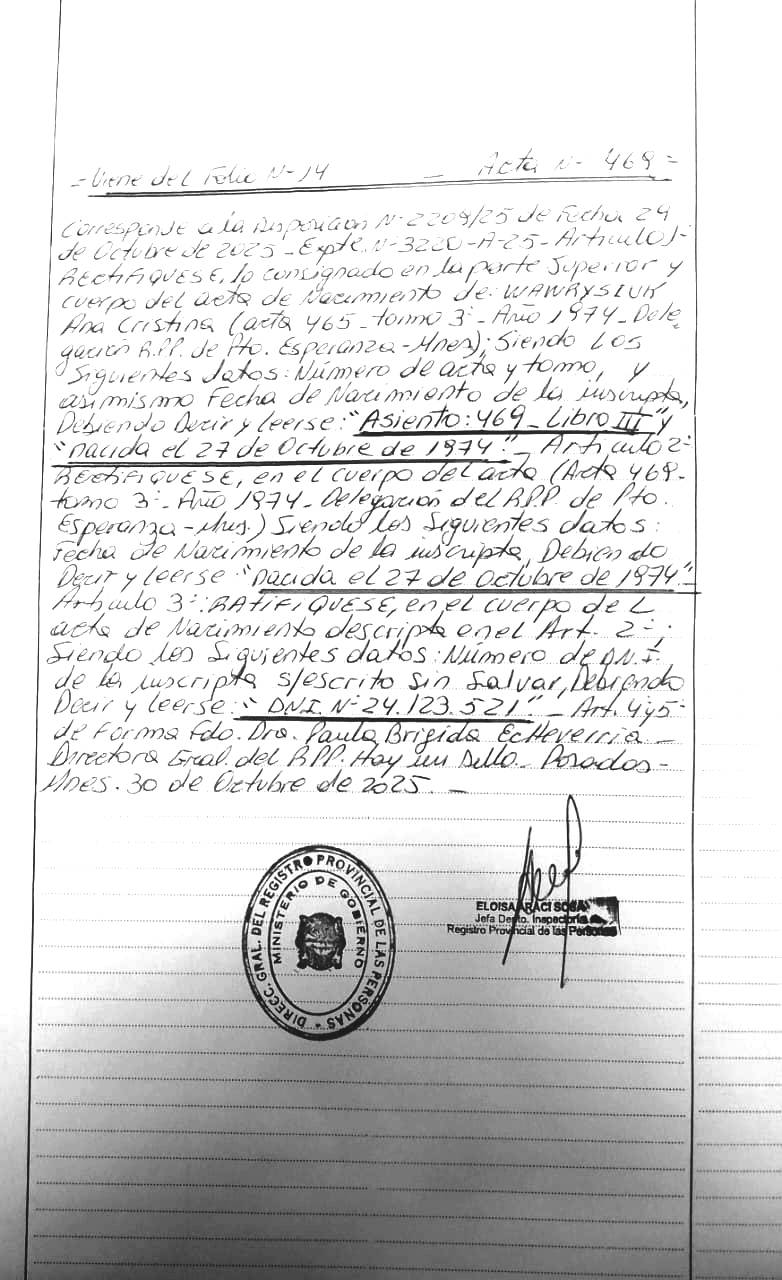 = Viene del Folio Nº 14 _ Acta Nº 469 =
Corresponde a la Disposición Nº 2209/25 de Fecha 29
de Octubre de 2025 _ Expte. Nº 3220-A-25 - Articulo 1º
RECTIFIQUESE, lo consignado en la parte Superior y
cuerpo del acta de Nacimiento de: WAWRYSZUK
Ana Cristina (acta 465 - tomo 3º - Año 1974 - Dele-
gación R.P.P. de Pto. Esperanza - Mnes); Siendo Los
Siguientes datos: Número de acta y tomo, y
asimismo Fecha de Nacimiento de la inscripta,
Debiendo Decir y leerse: "Asiento: 469 _ Libro III" y
"nacida el 27 de Octubre de 1974." _ Articulo 2º
RECTIFIQUESE, en el cuerpo del acta (Acta 469-
tomo 3º - Año 1974 - Delegación del R.P.P. de Pto.
Esperanza - Mnes.) Siendo los Siguientes datos:
Fecha de Nacimiento de la inscripta, Debiendo
Decir y leerse "nacida el 27 de Octubre de 1974" _
Articulo 3º: RATIFIQUESE, en el cuerpo del
acta de Nacimiento descripta en el Art. 2º;
Siendo los Siguientes datos: Número de D.N.I.
de la inscripta s/escrito sin Salvar, Debiendo
Decir y leerse: "DNI. Nº 24.123.521" _ Art. 4 y 5
de Forma Fdo. Dra. Paula Brigida Echeverria _
Directora Gral. del RPP. Hay un Sello _ Posadas -
Mnes. 30 de Octubre de 2025. _
DIRECC. GRAL. DEL REGISTRO PROVINCIAL DE LAS PERSONAS
MINISTERIO DE GOBIERNO
ELOISA ARACI SOSA
Jefa Depto. Inspectoria
Registro Provincial de las Personas